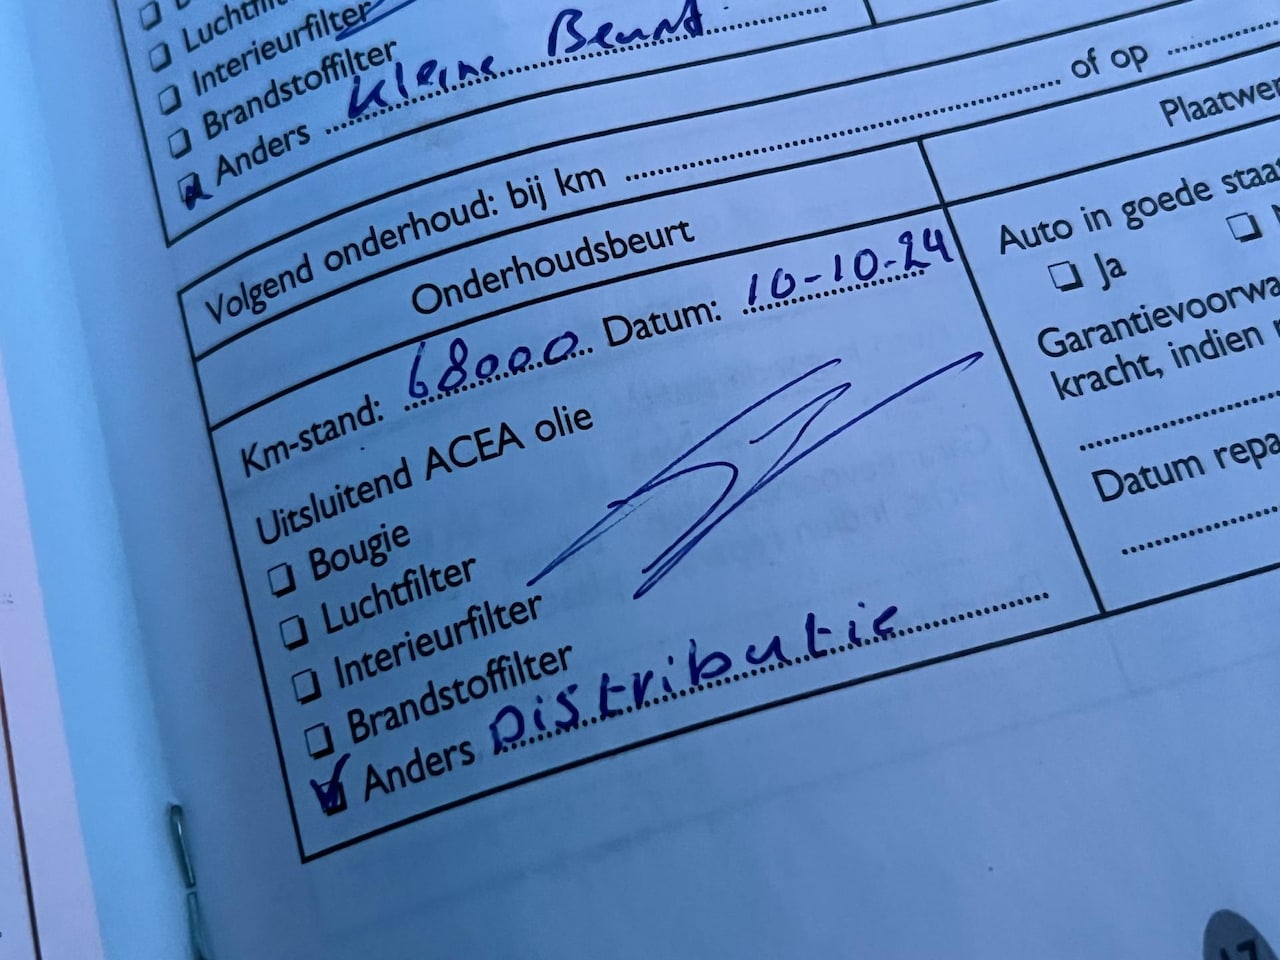 Luchtfilter
Interieurfilter
Brandstoffilter
Anders Kleine Beurt
Volgend onderhoud: bij km of op
Onderhoudsbeurt
Km-stand: 68000 Datum: 10-10-24
Uitsluitend ACEA olie
Bougie
Luchtfilter
Interieurfilter
Brandstoffilter
Anders Distributie
Plaatwer
Auto in goede staat
Ja
Garantievoorwa
kracht, indien
Datum repa
17